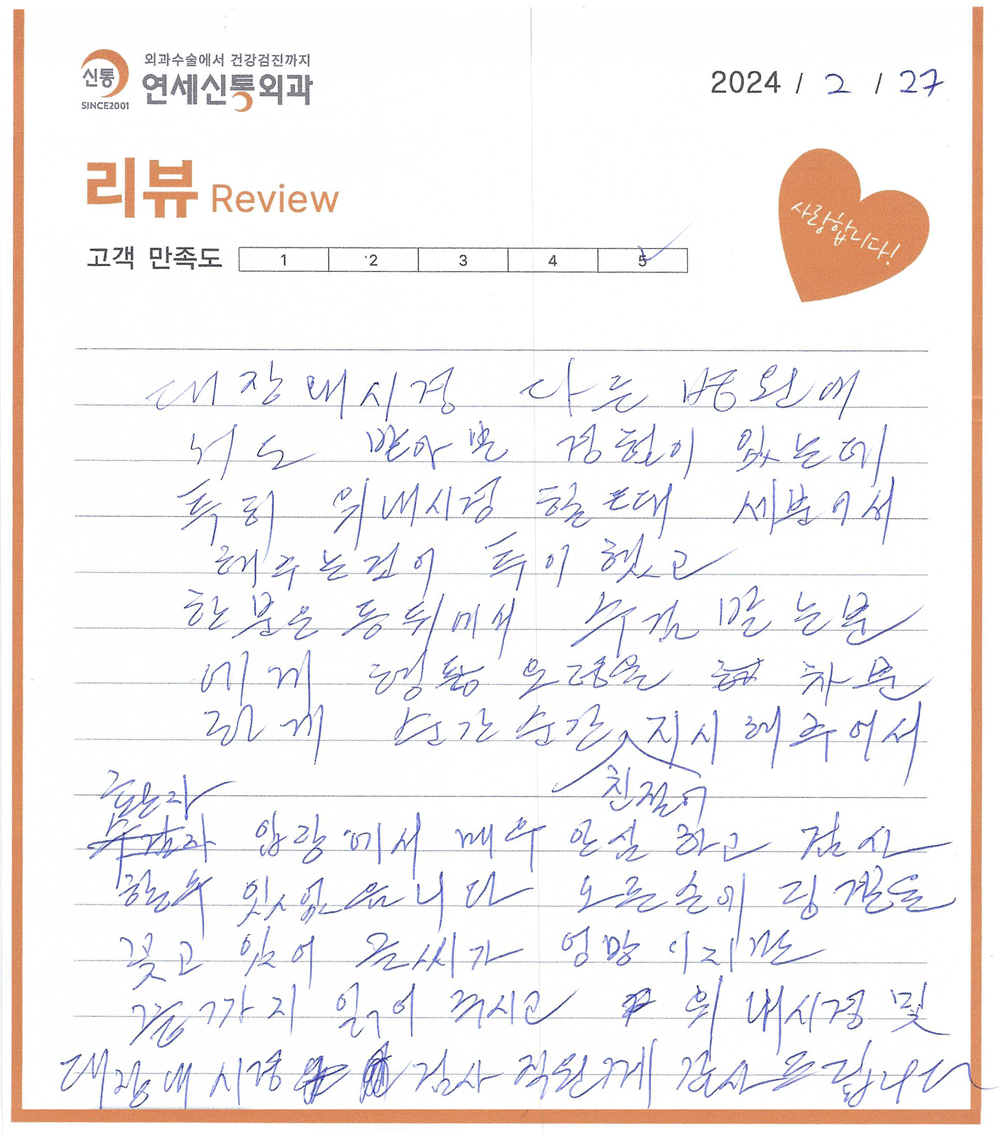 외과수술에서 건강검진까지
신통 연세신통외과
SINCE2001
2024 / 2 / 27
리뷰 Review
사랑합니다!
고객 만족도 1 2 3 4 5
대장내시경 다른 병원에
서도 받아본 경험이 있는데
특히 위내시경 할때 세분이서
해주는것이 특이했고
한분은 등뒤에서 수검 받는분
에게 행동 요령을 차분
하게 순간순간 지시해주어서
친절히
받는자
입장에서 매우 안심하고 검사
할수 있었습니다 오른손에 링겔을
꽂고 있어 글씨가 엉망이지만
끝까지 읽어주시고 위내시경 및
대장내시경 검사 직원께 감사드립니다